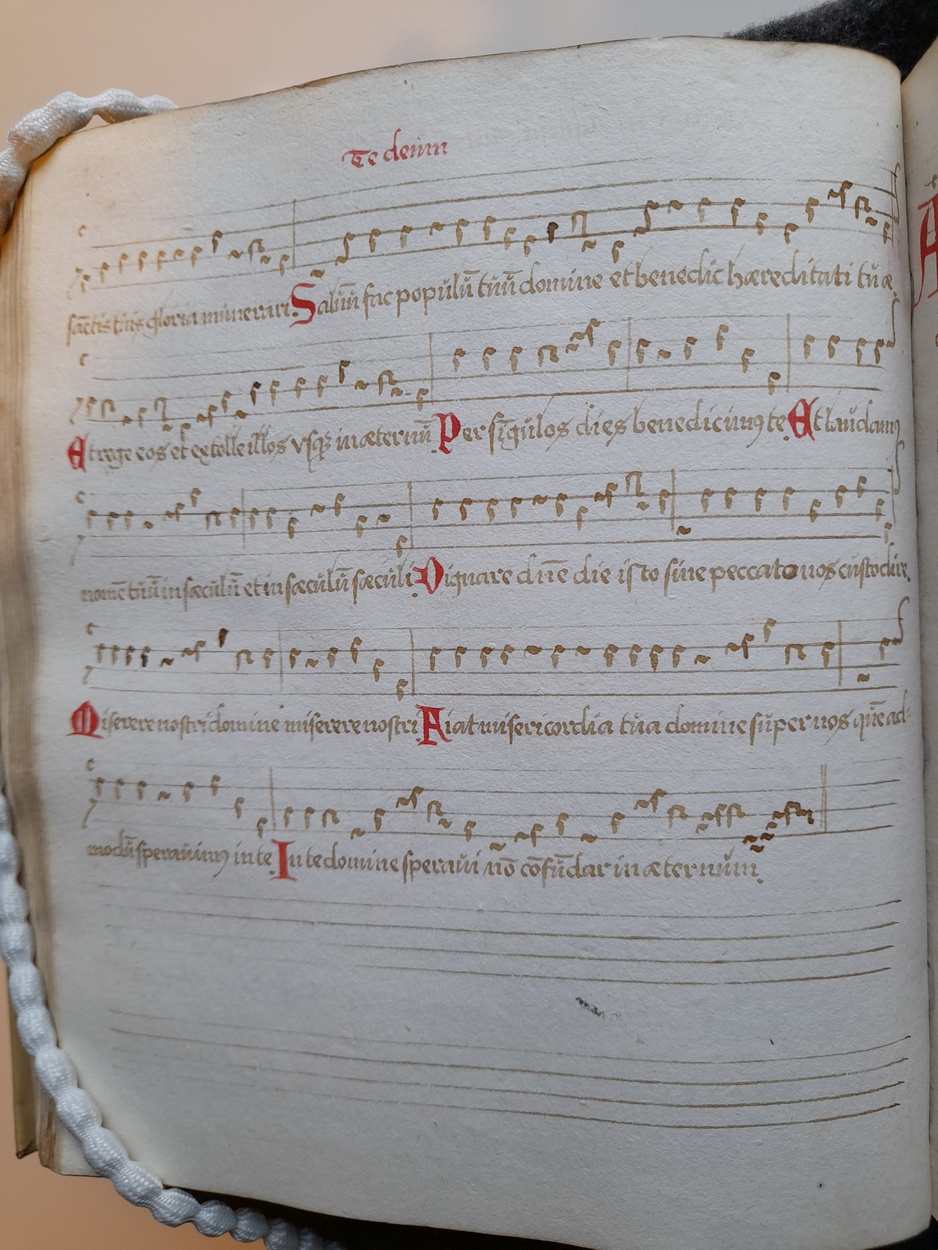 Te deum
sāctis tuis gloria munerari Saluū fac populū tuū domine et benedic hæreditati tuæ.
Et rege eos et extolle illos vsq; in æternū Per sīgulos dies benedicimꝰ te Et laudamꝰ
nomē tuū in sæculū et in sæculū sæculi Dignare dn̄e die isto sine peccato nos custodire.
Miserere nostri domine miserere nostri Fiat misericordia tua domine super nos quē ad-
modū sperauimꝰ in te In te domine speraui nō cōfūdar in æternum.